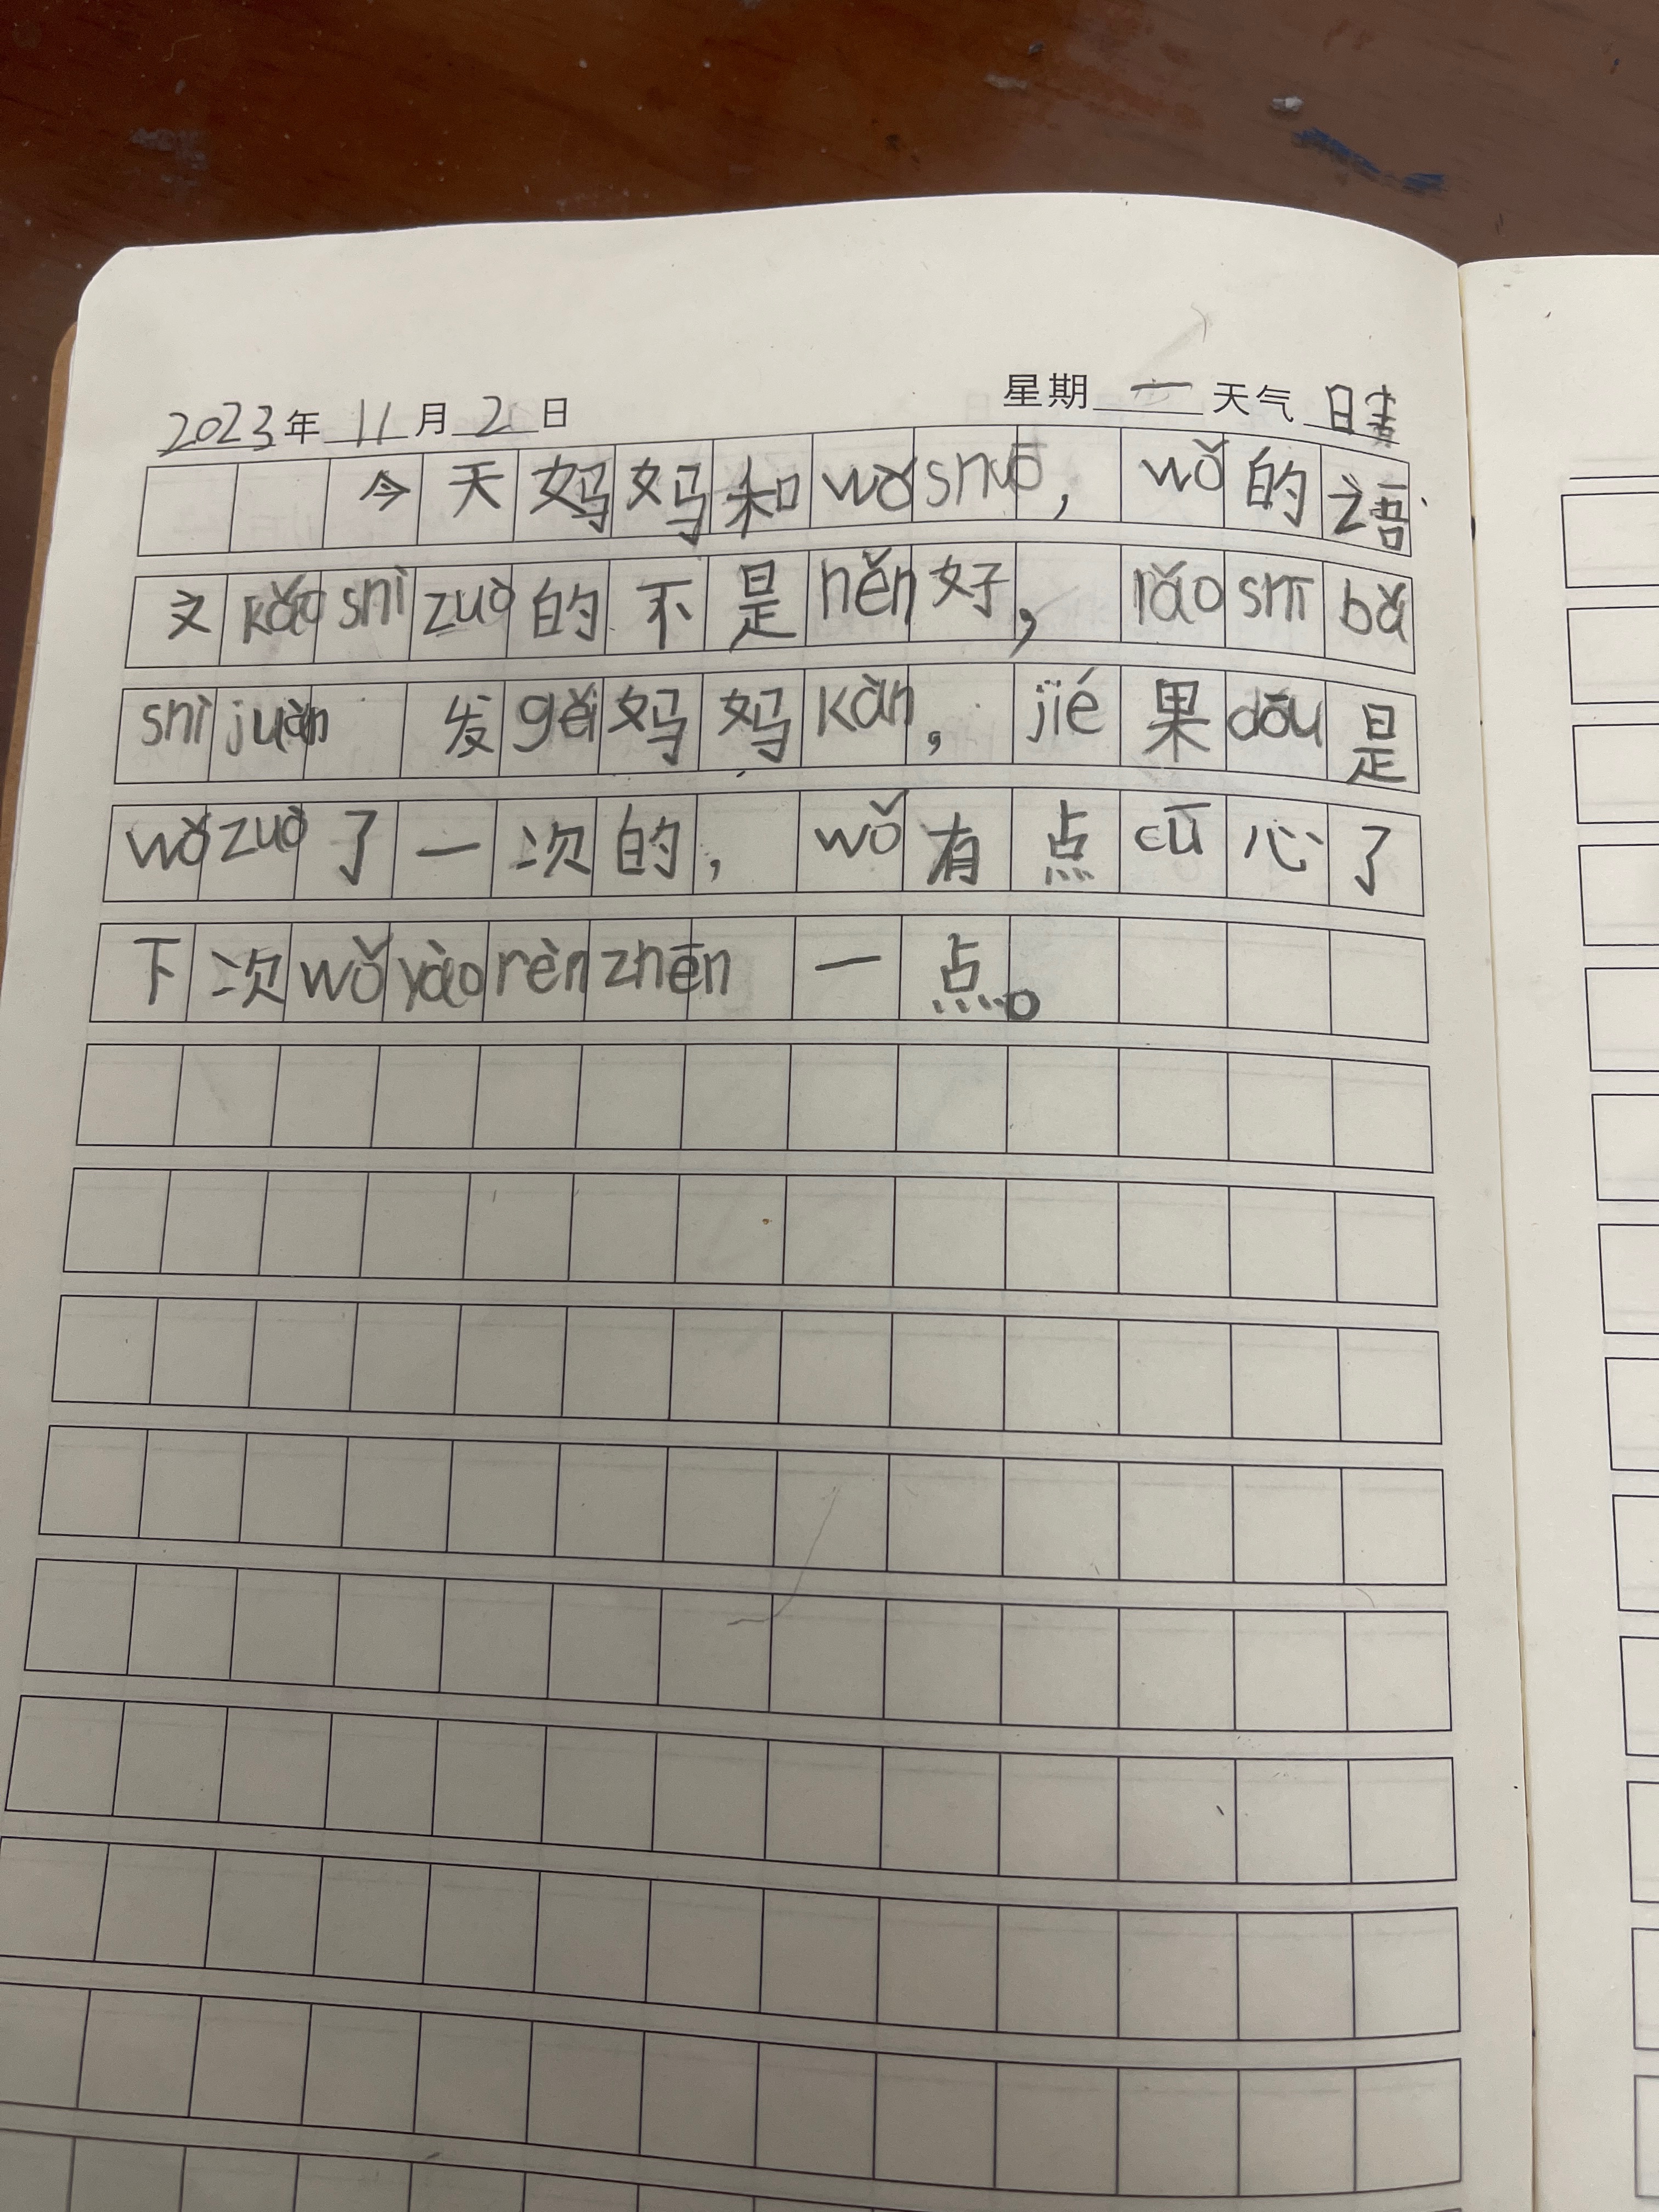 2023年 11 月 2 日 星期 一 天气 晴
今天妈妈和wǒ shuō，wǒ的语
文kǎo shì zuò的不是hěn好，lǎo shī bǎ
shì juàn 发gěi妈妈kàn，jié果dōu是
wǒ zuò了一次的，wǒ有点cū心了
下次wǒ yào rèn zhēn 一点。